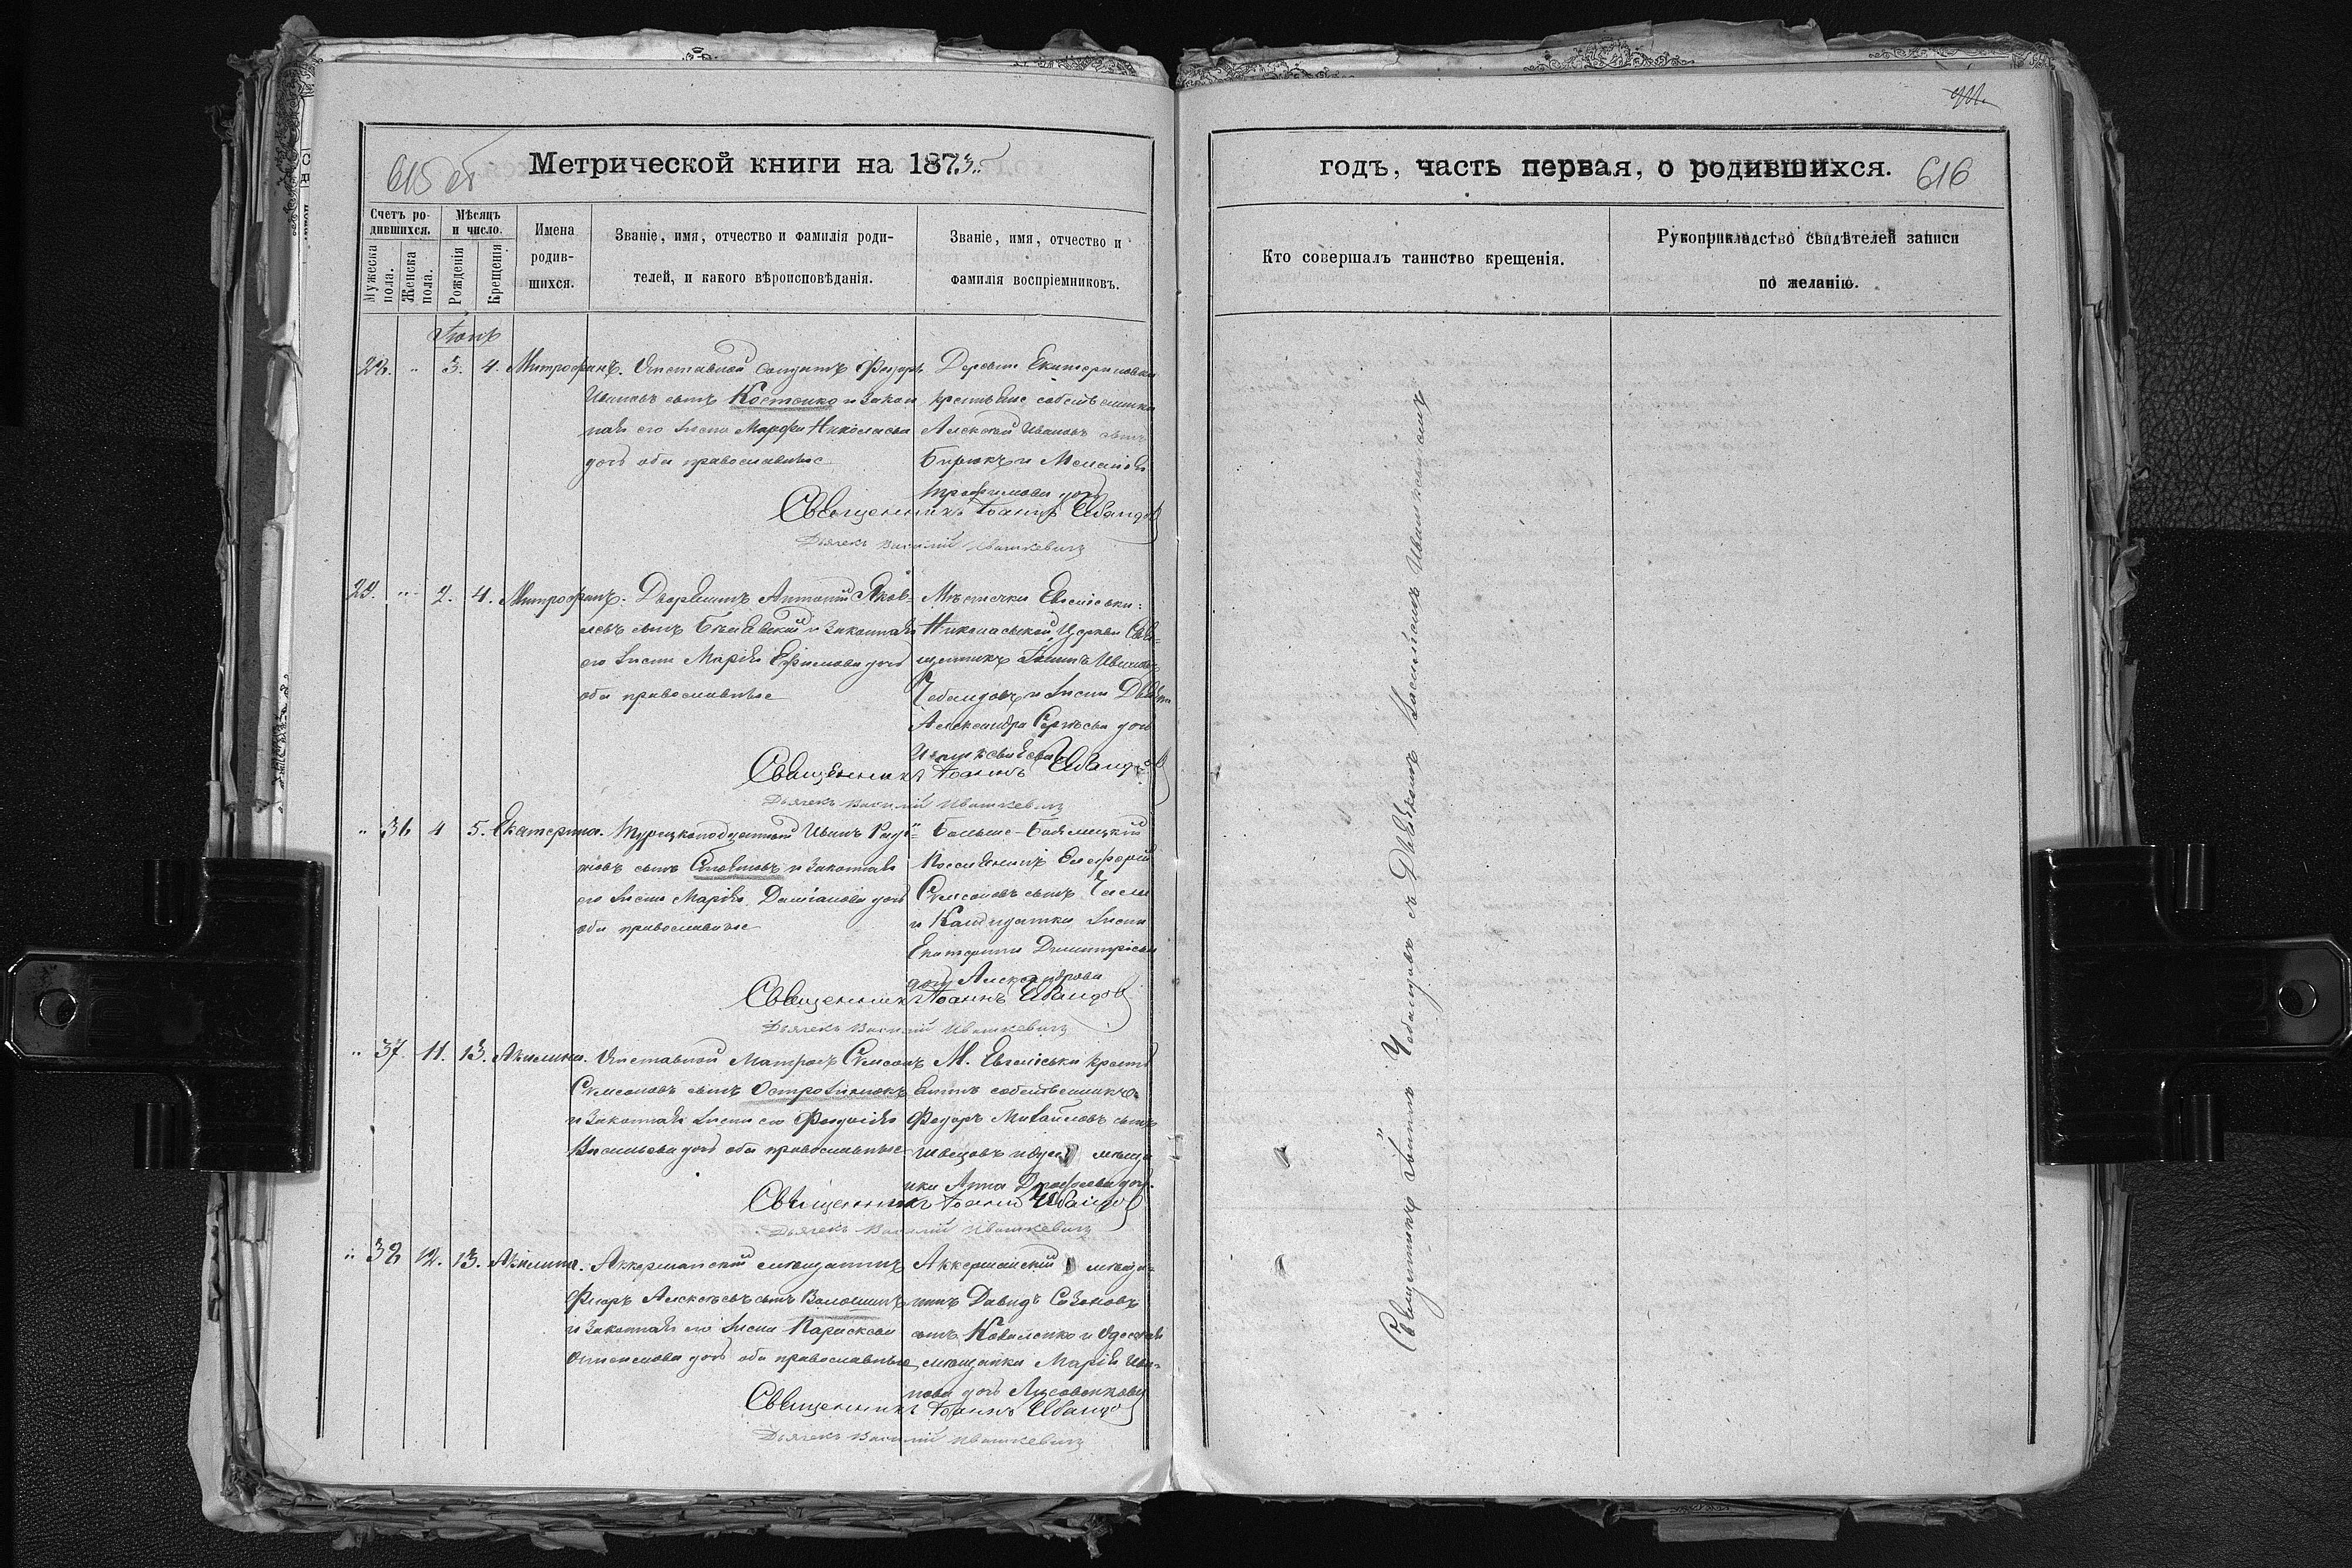 615 об
Метрической книги на 1873.
Счетъ ро-
дившихся.
Мужеска пола.
Женска пола.
Мѣсяцъ
и число.
Рожденія
Крещенія
Имена
родив-
шихся.
Званіе, имя, отчество и фамилія роди-
телей, и какого вѣроисповѣданія.
Званіе, имя, отчество и
фамилія воспріемниковъ.
Іюнь
28. " 3. 4. Митрофанъ. Отставной солдатъ Федоръ
Ивановъ сынъ Костенко и закон
ная его жена Марфа Николаева
дочь оба православные
Деревни Екатериновки
крестьяне собственники
Алексей Ивановъ сынъ
Бирюкъ и Меланія
Трофимова дочь
Священникъ Іоаннъ Чебандовъ
Дьячекъ Василий Ивашкевичъ
29. " 2. 4. Митрофанъ. Дворянинъ Антоній Яков-
левъ сынъ и законная
его жена Марія Ефимова дочь
оба православные
Мѣстечка
Николаевской Церкви Свя-
щенникъ Іоаннъ Ивановъ
Чебандовъ и жена
Александра Сергѣева дочь
Священникъ Іоаннъ Чебандовъ
Дьячекъ Василий Ивашкевичъ
" 36 4 5. Екатерина. Турецкоподданный Иванъ
сынъ Стояновъ и законная
его жена Марія Даміанова дочь
оба православные
Поселянинъ Елеферій
Симеоновъ сынъ
и жена
Екатерина Димитріева
дочь Александрова
Священникъ Іоаннъ Чебандовъ
Дьячекъ Василий Ивашкевичъ
" 37. 11. 13. Акилина. Отставной Матросъ Симеонъ
Симеоновъ сынъ
и законная жена его Феодосія
Васильева дочь оба православные
М. крестья
нинъ собственникъ
Федоръ Михайловъ сынъ
Швецовъ и мѣща
нка Анна дочь
Священникъ Іоаннъ Чебандовъ
Дьячекъ Василий Ивашкевичъ
" 38 12. 13. Акилина. Аккерманский мещанинъ
Алексѣевъ сынъ Волошинъ
и законная его жена Параскева
дочь оба православные
Аккерманский мѣща-
нинъ Давидъ Созоновъ
сынъ Коваленко и Одесская
мещанка Марія Ива-
нова дочь
Священникъ Іоаннъ Чебандовъ
Дьячекъ Василий Ивашкевичъ
годъ, часть первая, о родившихся.
616
Кто совершалъ таинство крещенія.
Рукоприкладство свидѣтелей записи
по желанію.
Священникъ Іоаннъ Чебандовъ съ Дьячкомъ Василіемъ Ивашкевичемъ